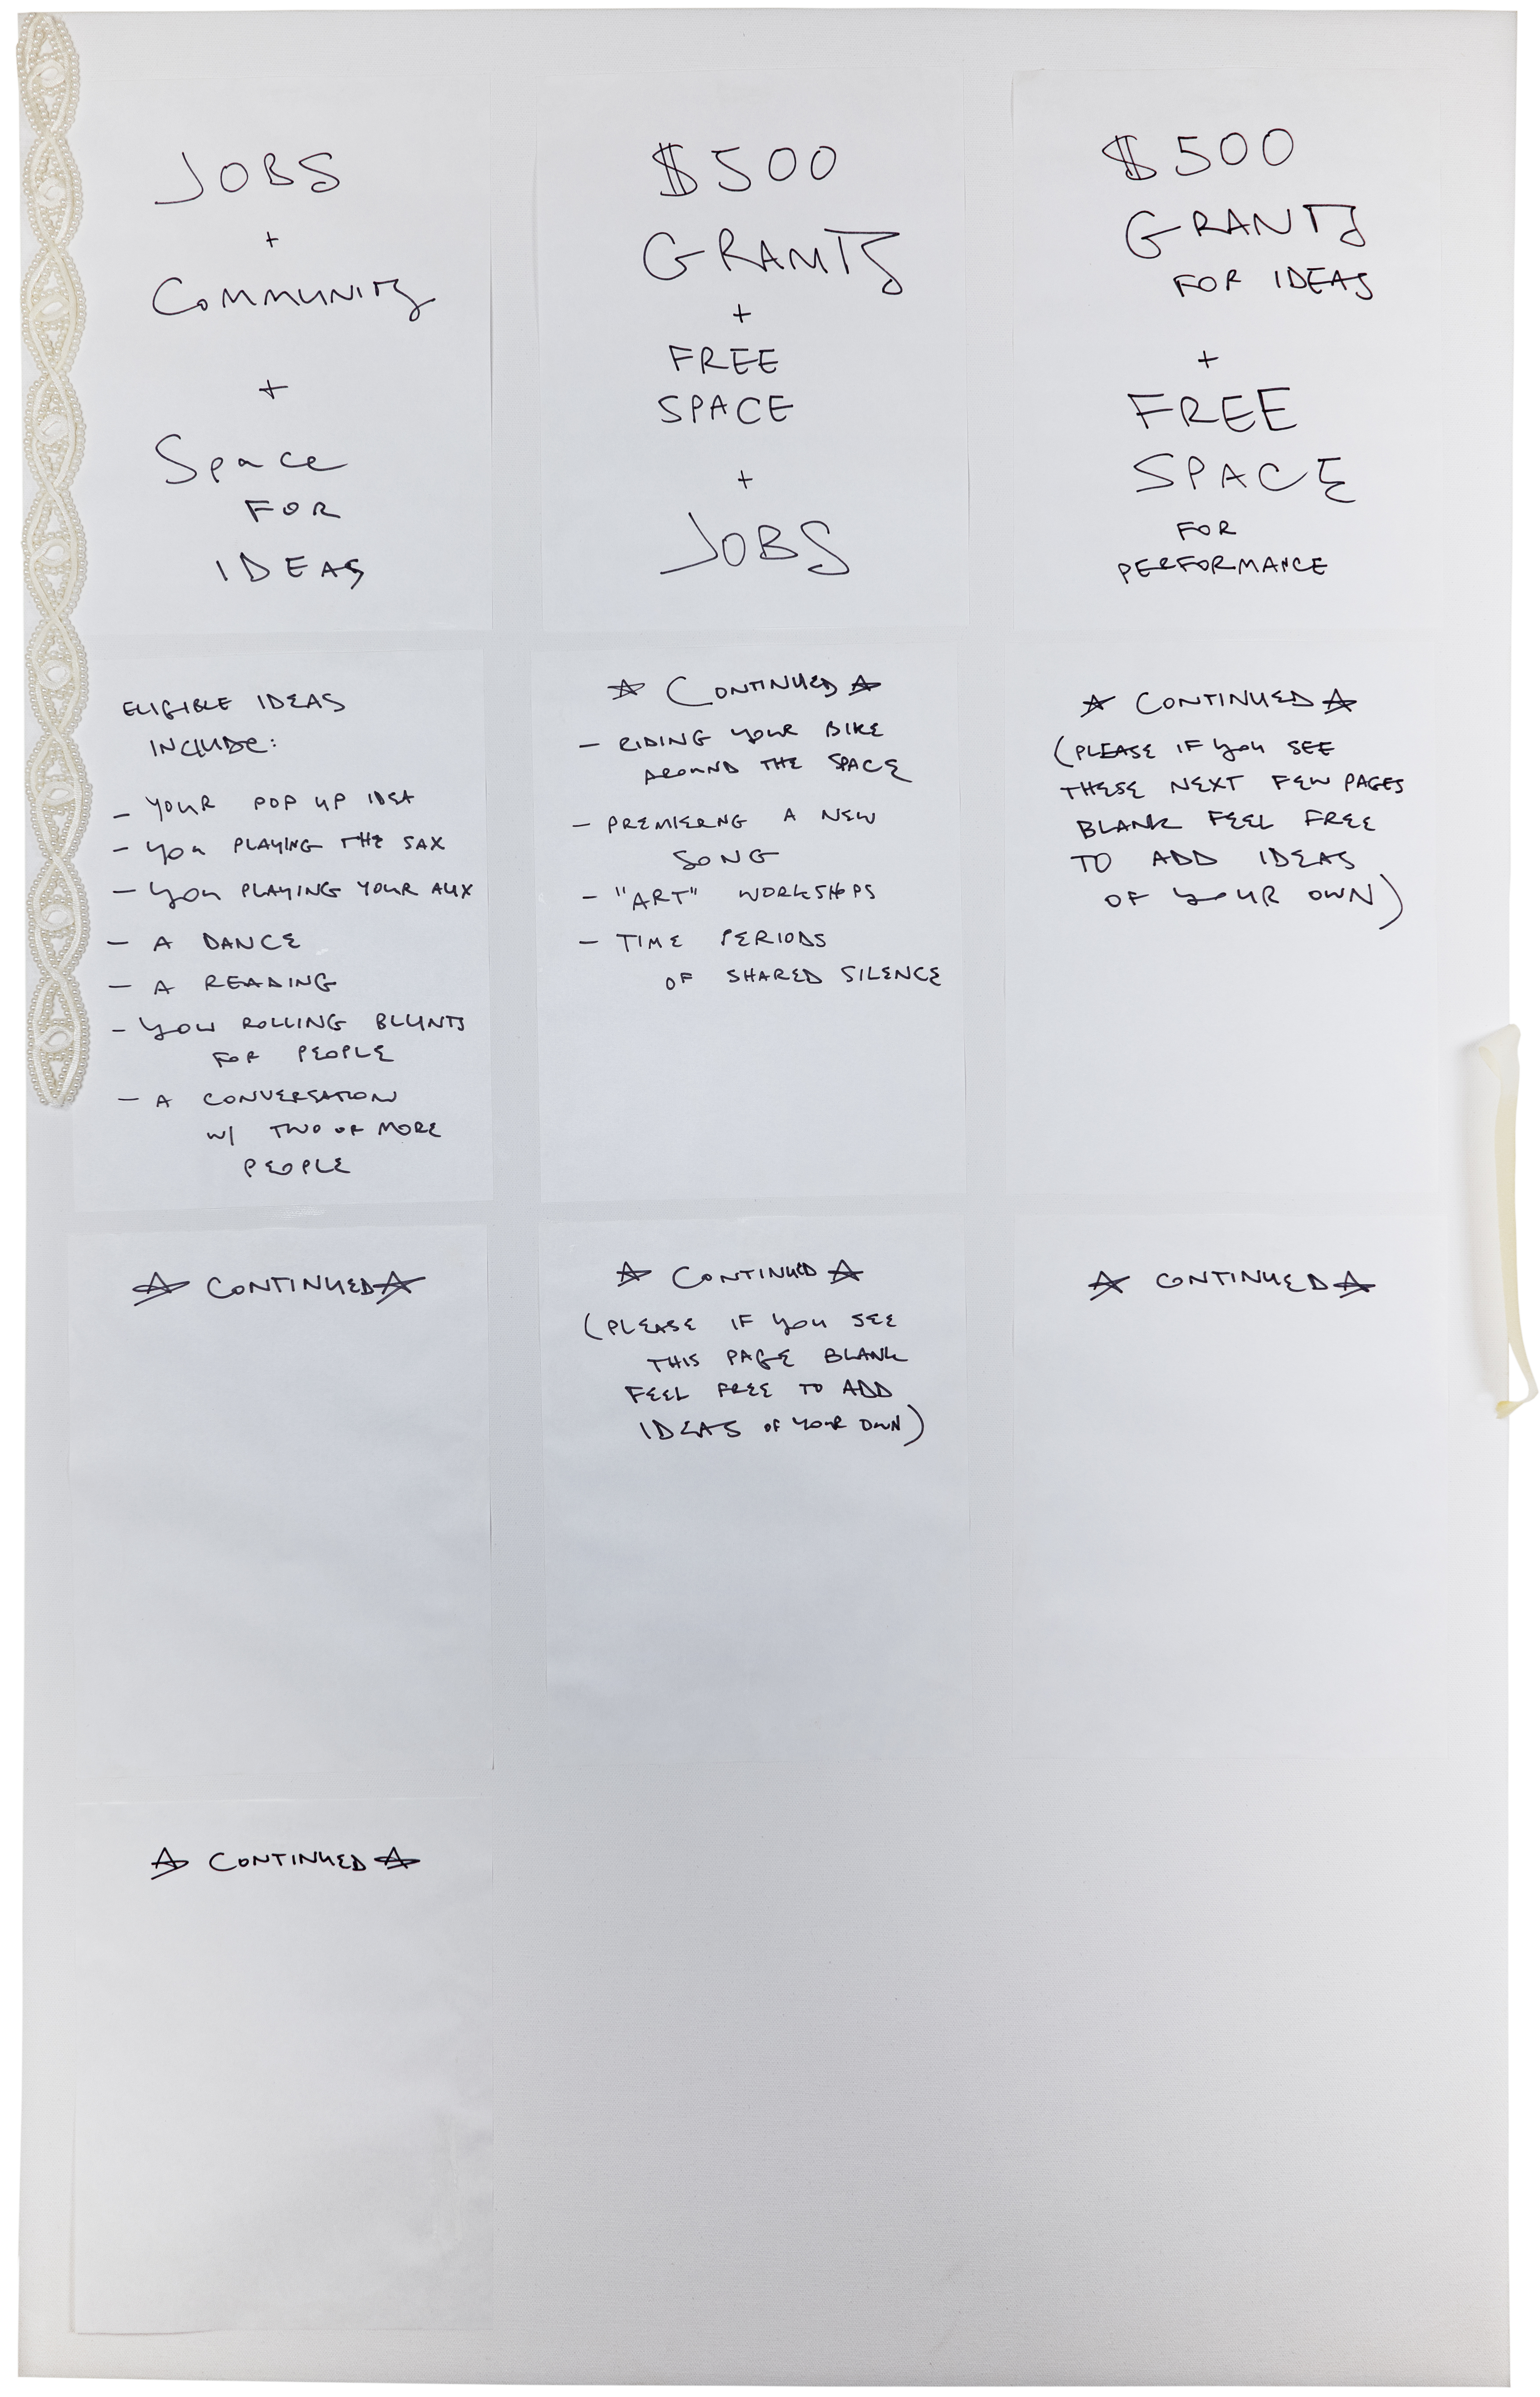 JOBS
+
COMMUNITY
+
Space
FOR
IDEAS
$500
GRANTS
+
FREE
SPACE
+
JOBS
$500
GRANTS
FOR IDEAS
+
FREE
SPACE
FOR
PERFORMANCE
ELIGIBLE IDEAS
INCLUDE:
- YOUR POP UP IDEA
- YOU PLAYING THE SAX
- YOU PLAYING YOUR AUX
- A DANCE
- A READING
- YOU ROLLING BLUNTS
FOR PEOPLE
- A CONVERSATION
W/ TWO OR MORE
PEOPLE
☆ CONTINUED ☆
- RIDING YOUR BIKE
AROUND THE SPACE
- PREMIERNG A NEW
SONG
- "ART" WORKSHOPS
- TIME PERIODS
OF SHARED SILENCE
☆ CONTINUED ☆
(PLEASE IF YOU SEE
THESE NEXT FEW PAGES
BLANK FEEL FREE
TO ADD IDEAS
OF YOUR OWN)
☆ CONTINUED ☆
☆ CONTINUED ☆
(PLEASE IF YOU SEE
THIS PAGE BLANK
FEEL FREE TO ADD
IDEAS OF YOUR OWN)
☆ CONTINUED ☆
☆ CONTINUED ☆